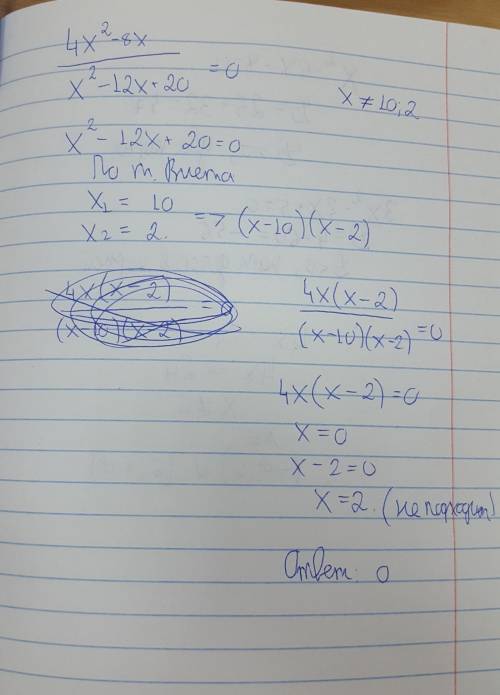 4x² - 8x
x² - 12x + 20 = 0
x ≠ 10; 2
x² - 12x + 20 = 0
По т. Виета
x₁ = 10
x₂ = 2. => (x-10)(x-2)
4x(x-2)
(x-10)(x-2) = 0
4x(x-2)
(x-10)(x-2) = 0
4x(x-2) = 0
x = 0
x - 2 = 0
x = 2. (не подходит)
Ответ: 0